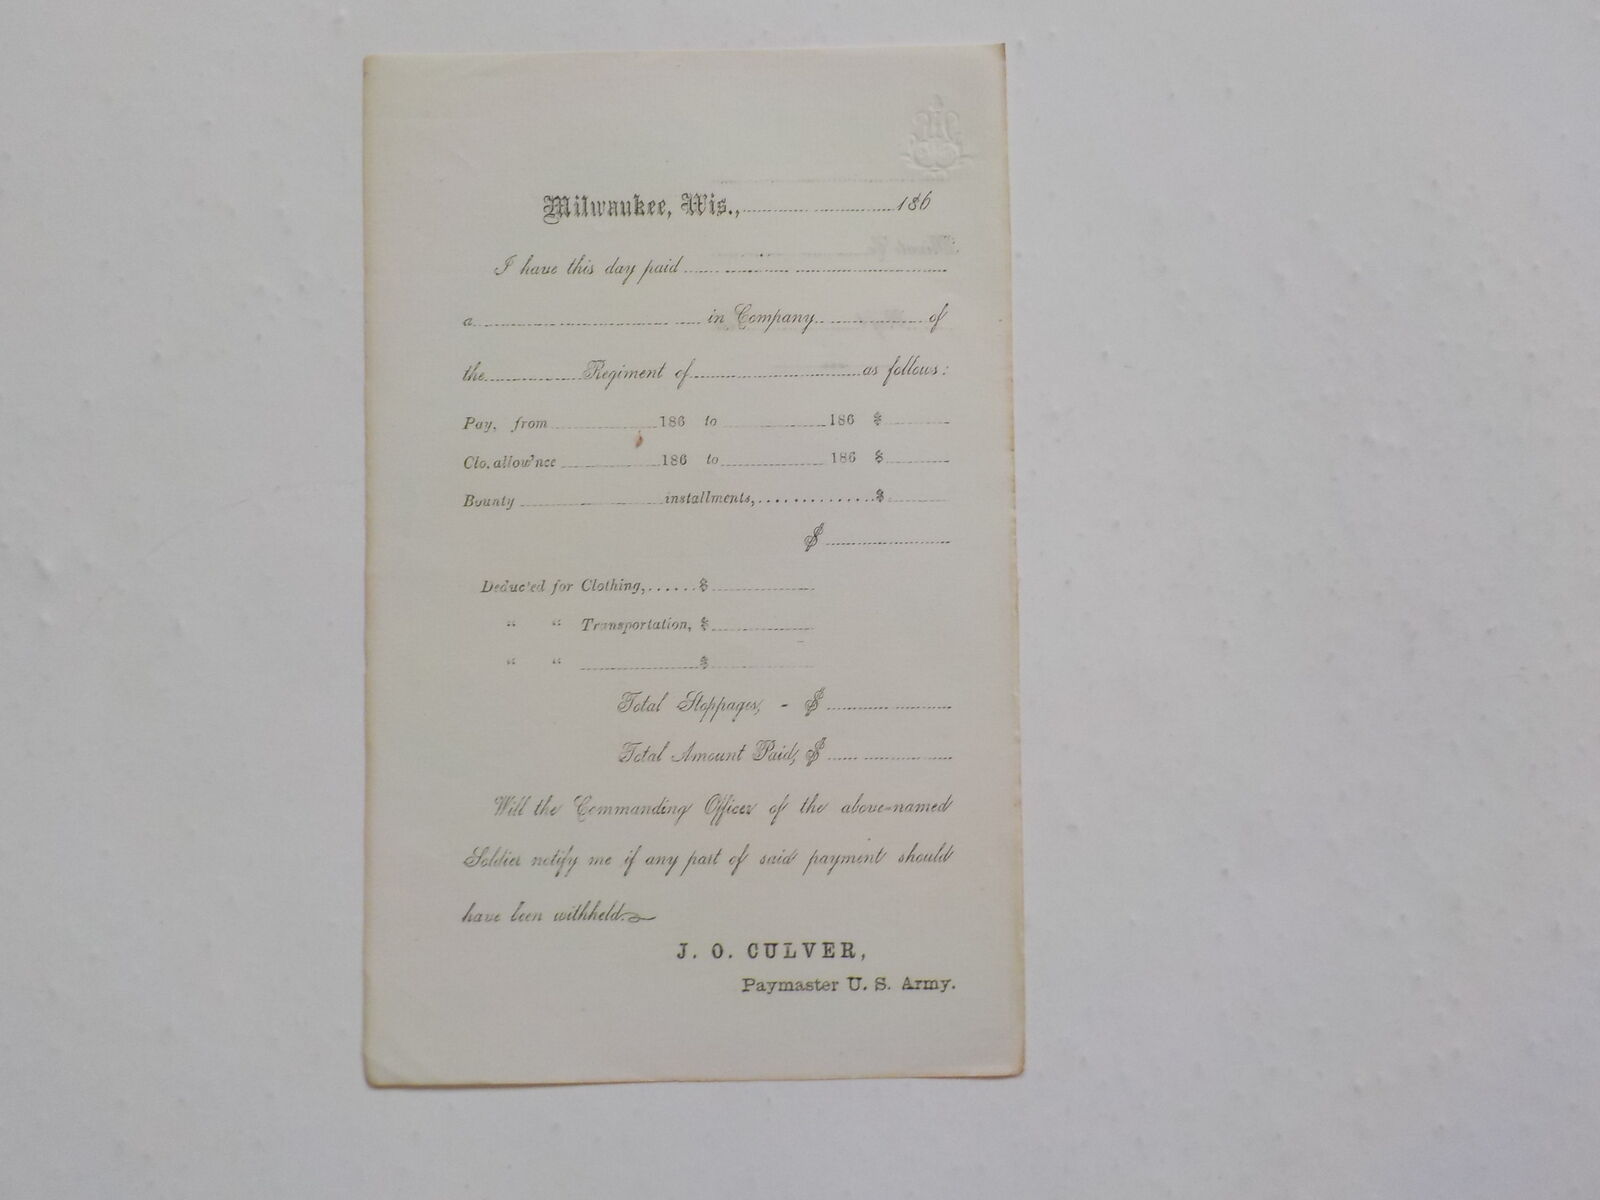 Milwaukee, Wis., 186
I have this day paid
a in Company of
the Regiment of as follows:
Pay, from 186 to 186 $
Clo. allow'nce 186 to 186 $
Bounty installments, $
$
Deducted for Clothing, $
" " Transportation, $
" " $
Total Stoppages, - $
Total Amount Paid, $
Will the Commanding Officer of the above-named
Soldier notify me if any part of said payment should
have been withheld.
J. O. CULVER,
Paymaster U. S. Army.